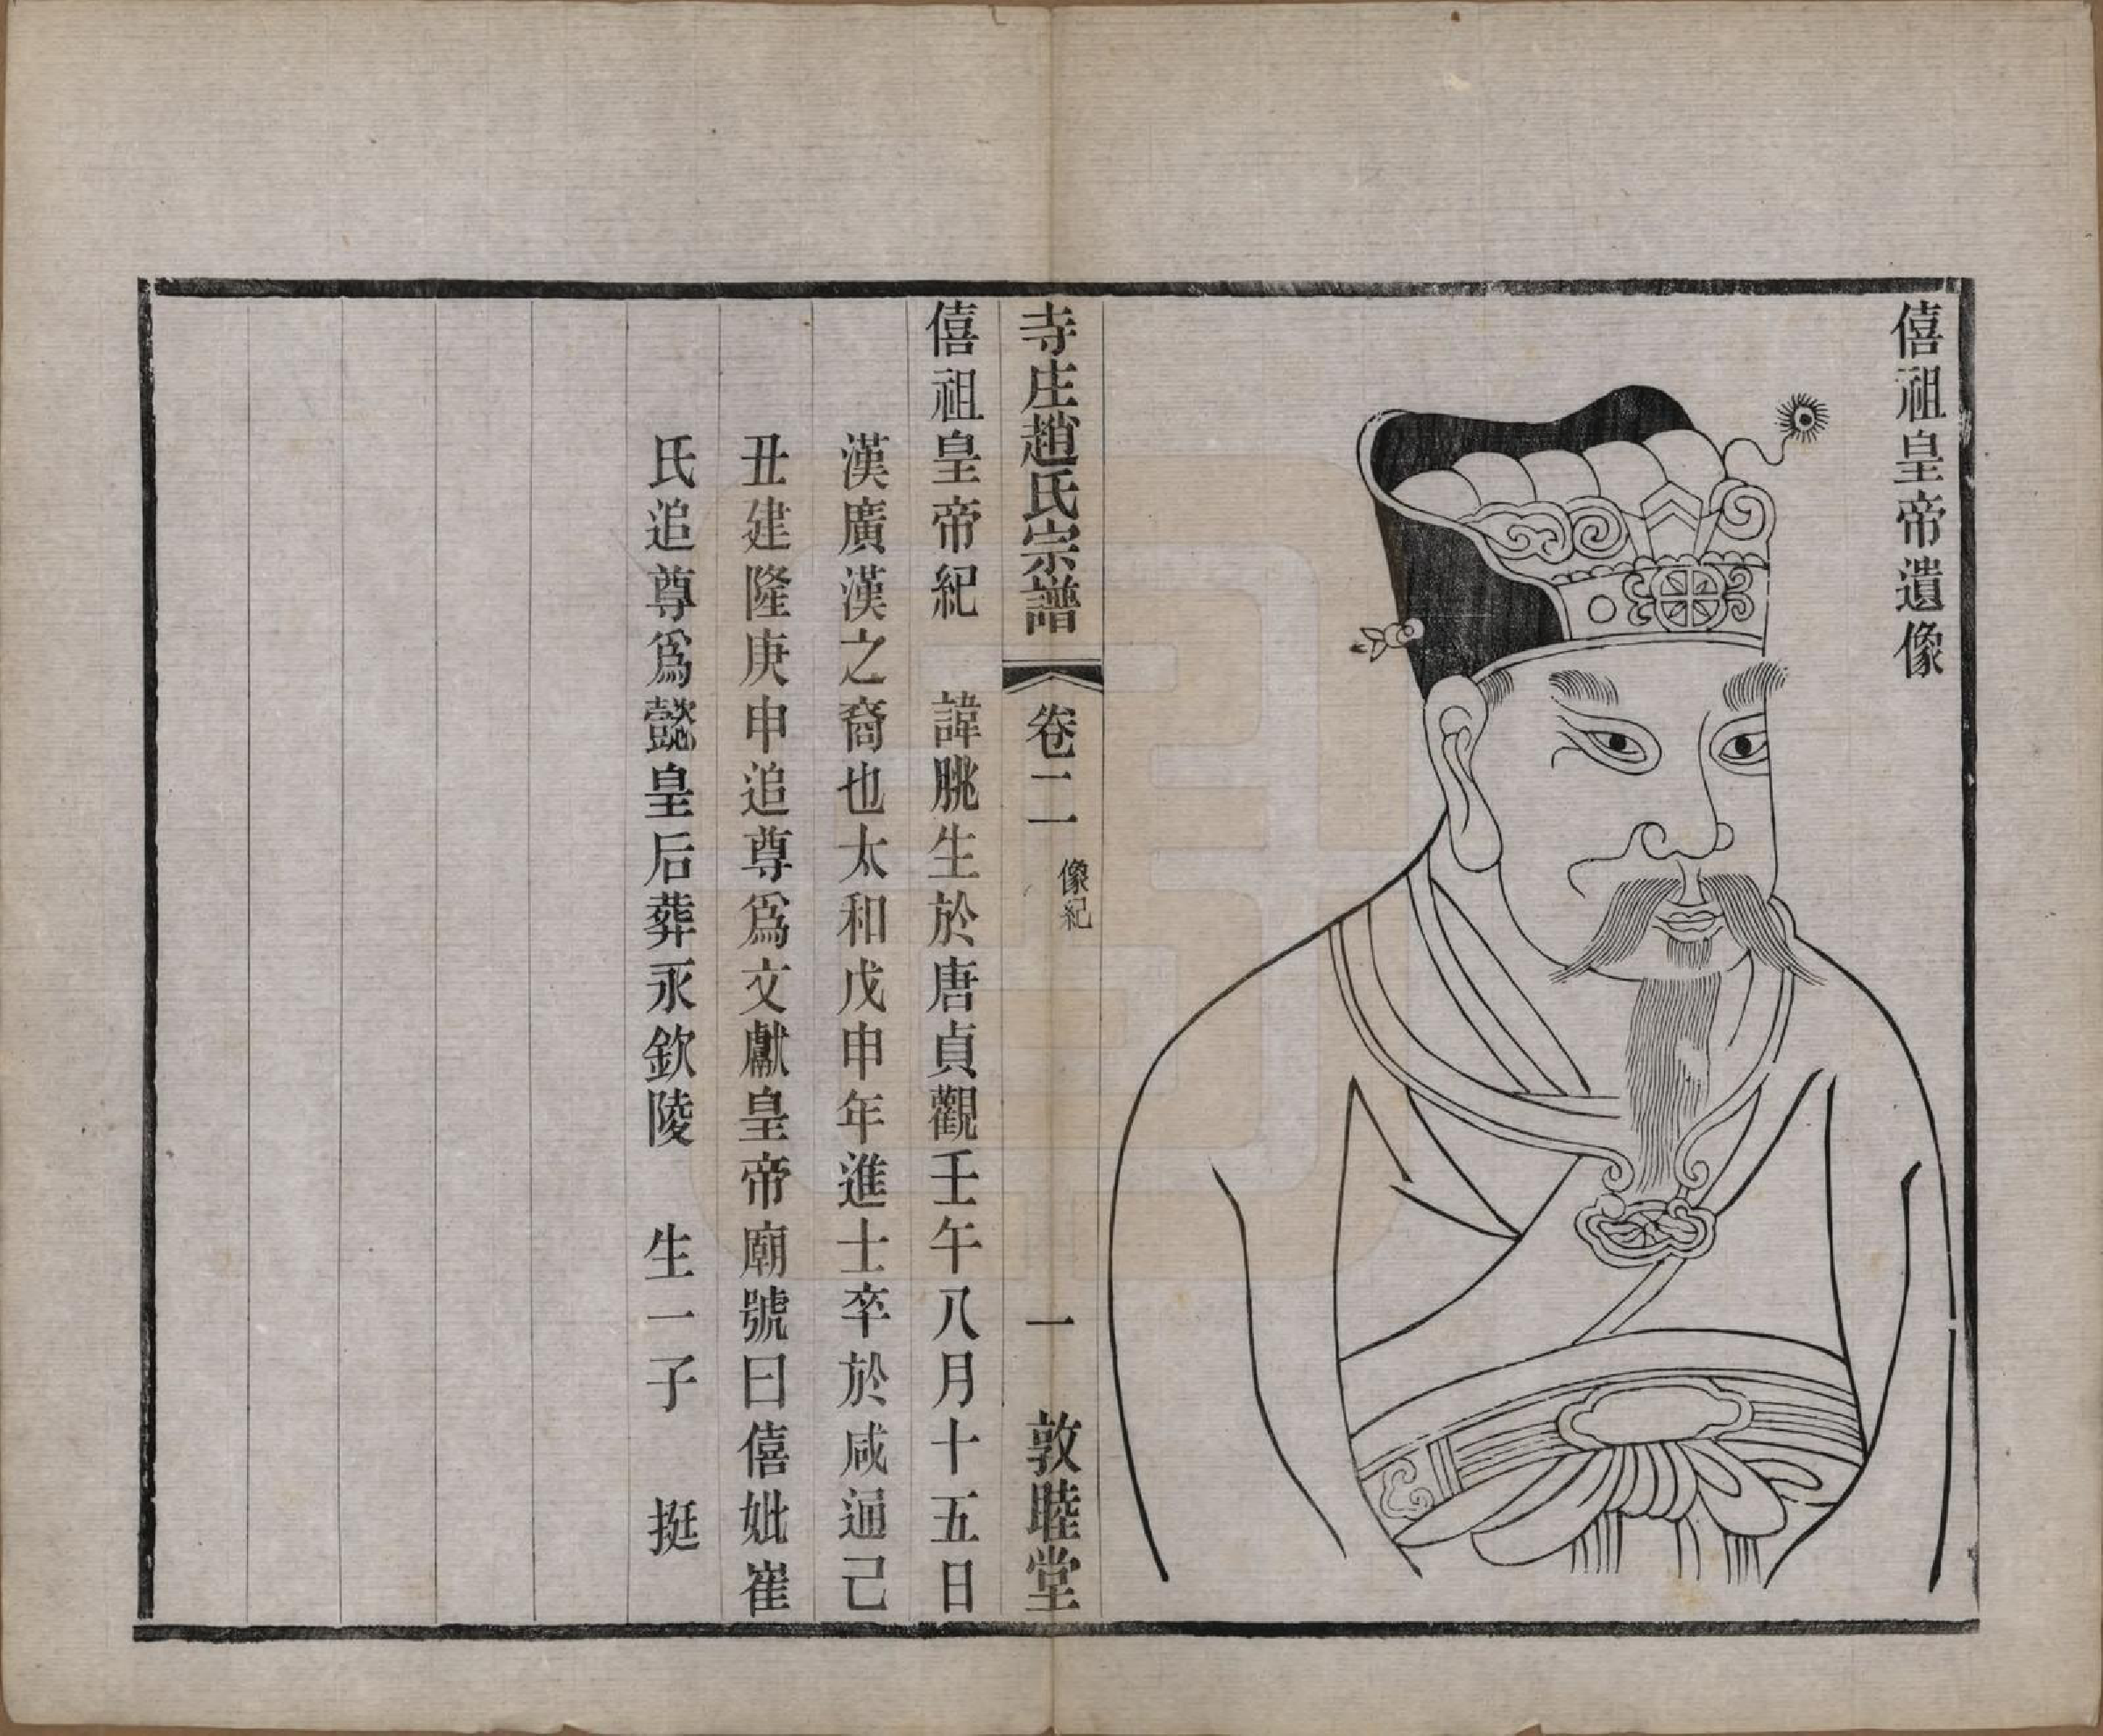 僖祖皇帝遺像
寺庄趙氏宗譜 卷二 像紀 一 敦睦堂
僖祖皇帝紀 諱朓生於唐貞觀壬午八月十五日
漢廣漢之裔也太和戊申年進士卒於咸通己
丑建隆庚申追尊爲文獻皇帝廟號曰僖妣崔
氏追尊爲懿皇后葬永欽陵 生一子 挺